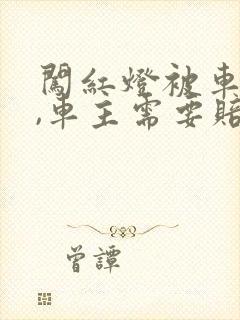 闖紅燈被車
,車主需要賠
曾譚